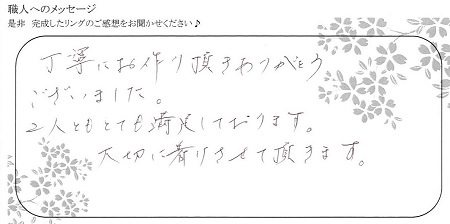 職人へのメッセージ
是非 完成したリングのご感想をお聞かせください♪
丁寧にお作り頂きありがとう
ございました。
2人ともとても満足しております。
大切に着けさせて頂きます。